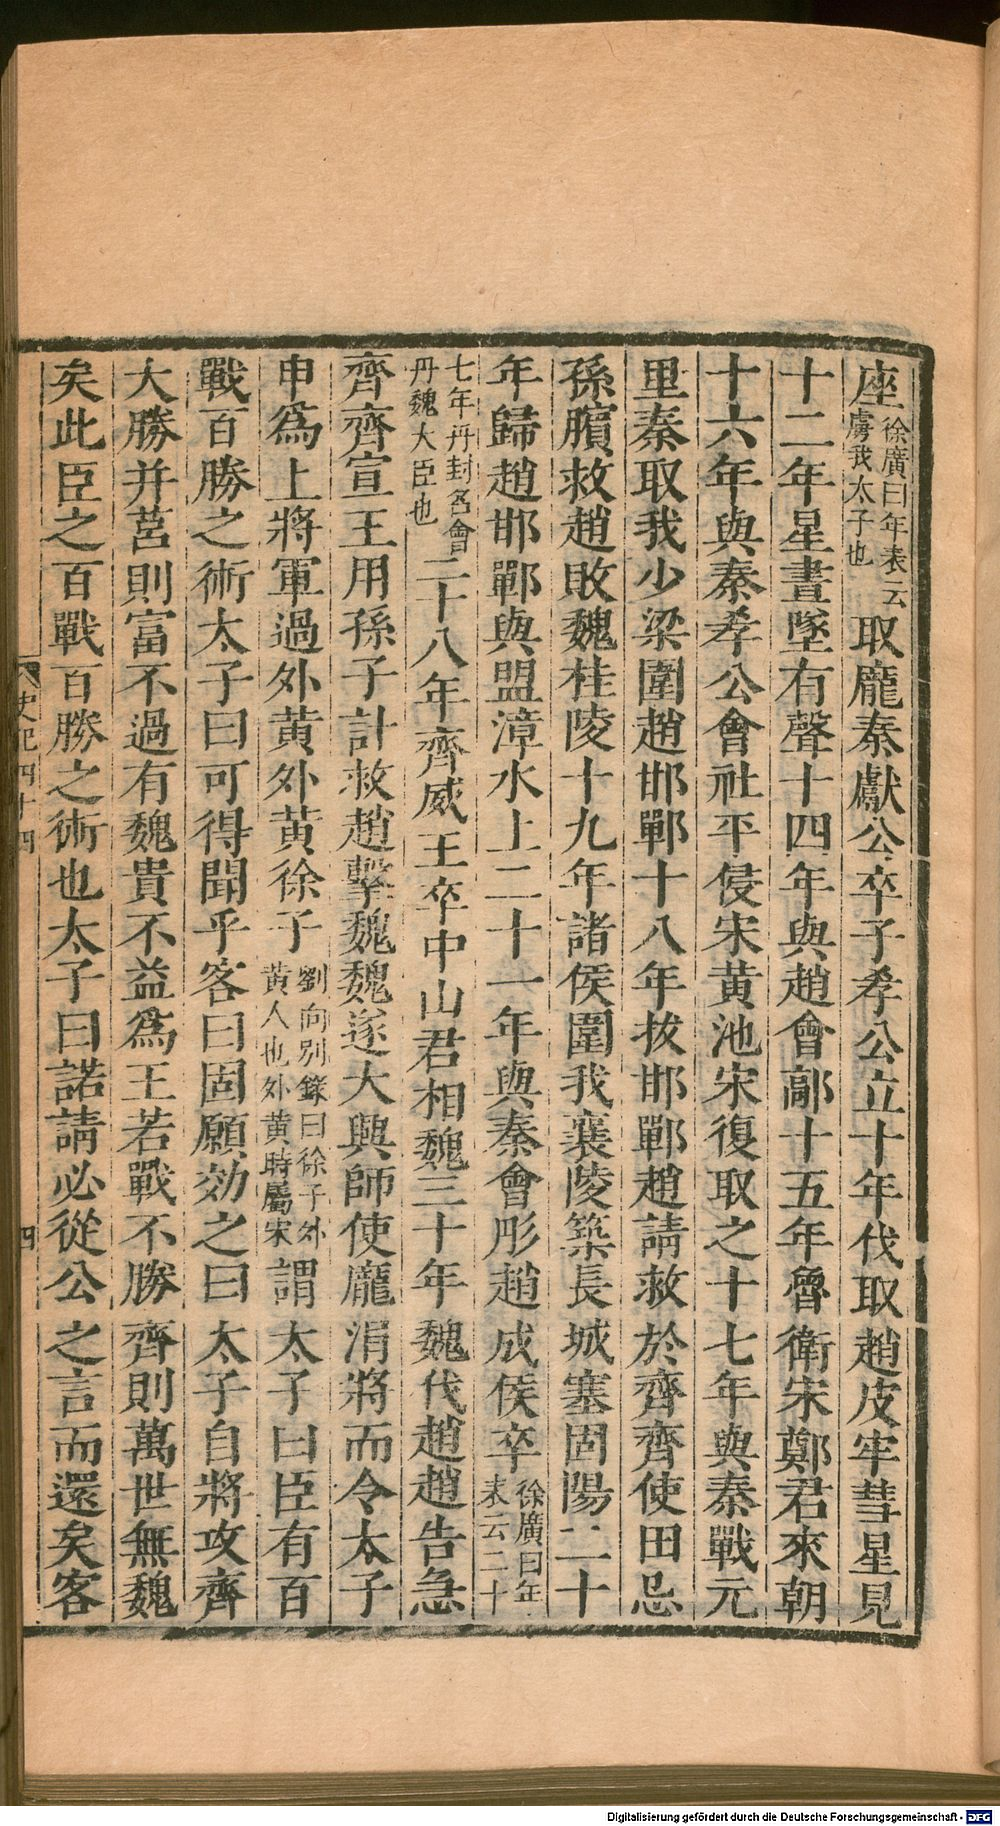 座徐廣曰年表云虜我太子也取龐秦獻公卒子孝公立十年伐取趙皮牢彗星見
十二年星晝墜有聲十四年與趙會鄗十五年魯衛宋鄭君來朝
十六年與秦孝公會社平侵宋黄池宋復取之十七年與秦戰元
里秦取我少梁圍趙邯鄲十八年拔邯鄲趙請救於齊齊使田忌
孫臏救趙敗魏桂陵十九年諸侯圍我襄陵築長城塞固陽二十
年歸趙邯鄲與盟漳水上二十一年與秦會彤趙成侯卒徐廣曰年表云二十
七年丹封名會丹魏大臣也二十八年齊威王卒中山君相魏三十年魏伐趙趙告急
齊齊宣王用孫子計救趙擊魏魏遂大興師使龐涓將而令太子
申爲上將軍過外黄外黄徐子劉向别録曰徐子外黄人也外黄時屬宋謂太子曰臣有百
戰百勝之術太子曰可得聞乎客曰固願効之曰太子自將攻齊
大勝并莒則富不過有魏貴不益爲王若戰不勝齊則萬世無魏
矣此臣之百戰百勝之術也太子曰諾請必從公之言而還矣客
史記四十四
四
Digitalisierung gefördert durch die Deutsche Forschungsgemeinschaft - DFG